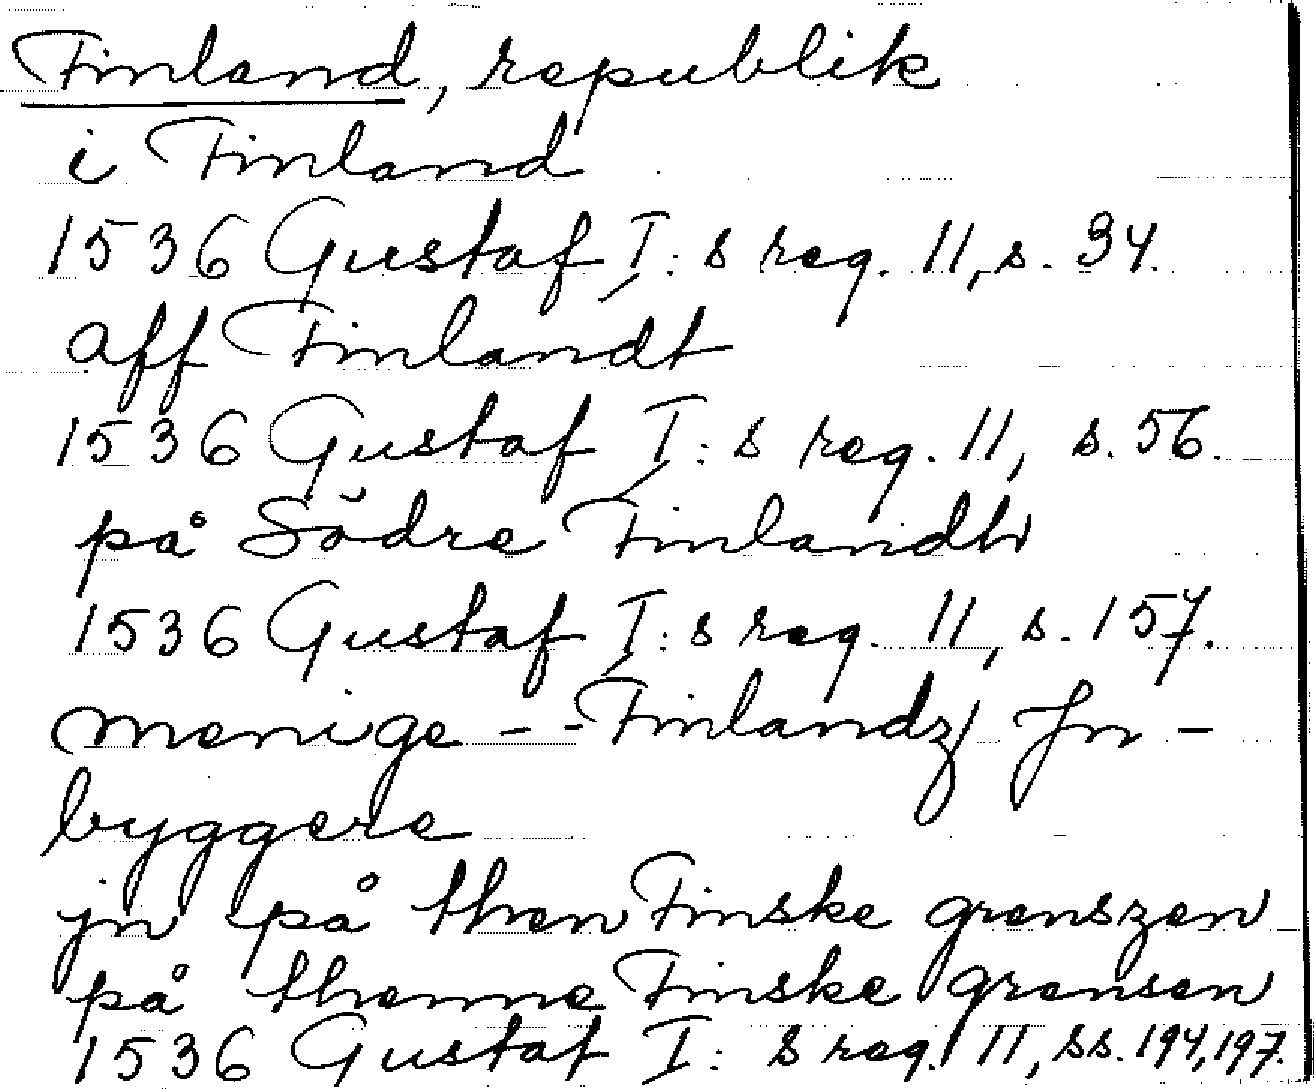 Finland, republik
i Finland
1536 Gustaf I:s reg. 11, s. 34.
aff Finlandt
1536 Gustaf I:s reg. 11, s. 56.
på Södre Finlandh
1536 Gustaf I:s reg. 11, s. 157.
menige -- Finlandz Jn-
byggere
jn på then Finske grenszen
på thenne Finske grensen
1536 Gustaf I:s reg. 11, ss. 194, 197.